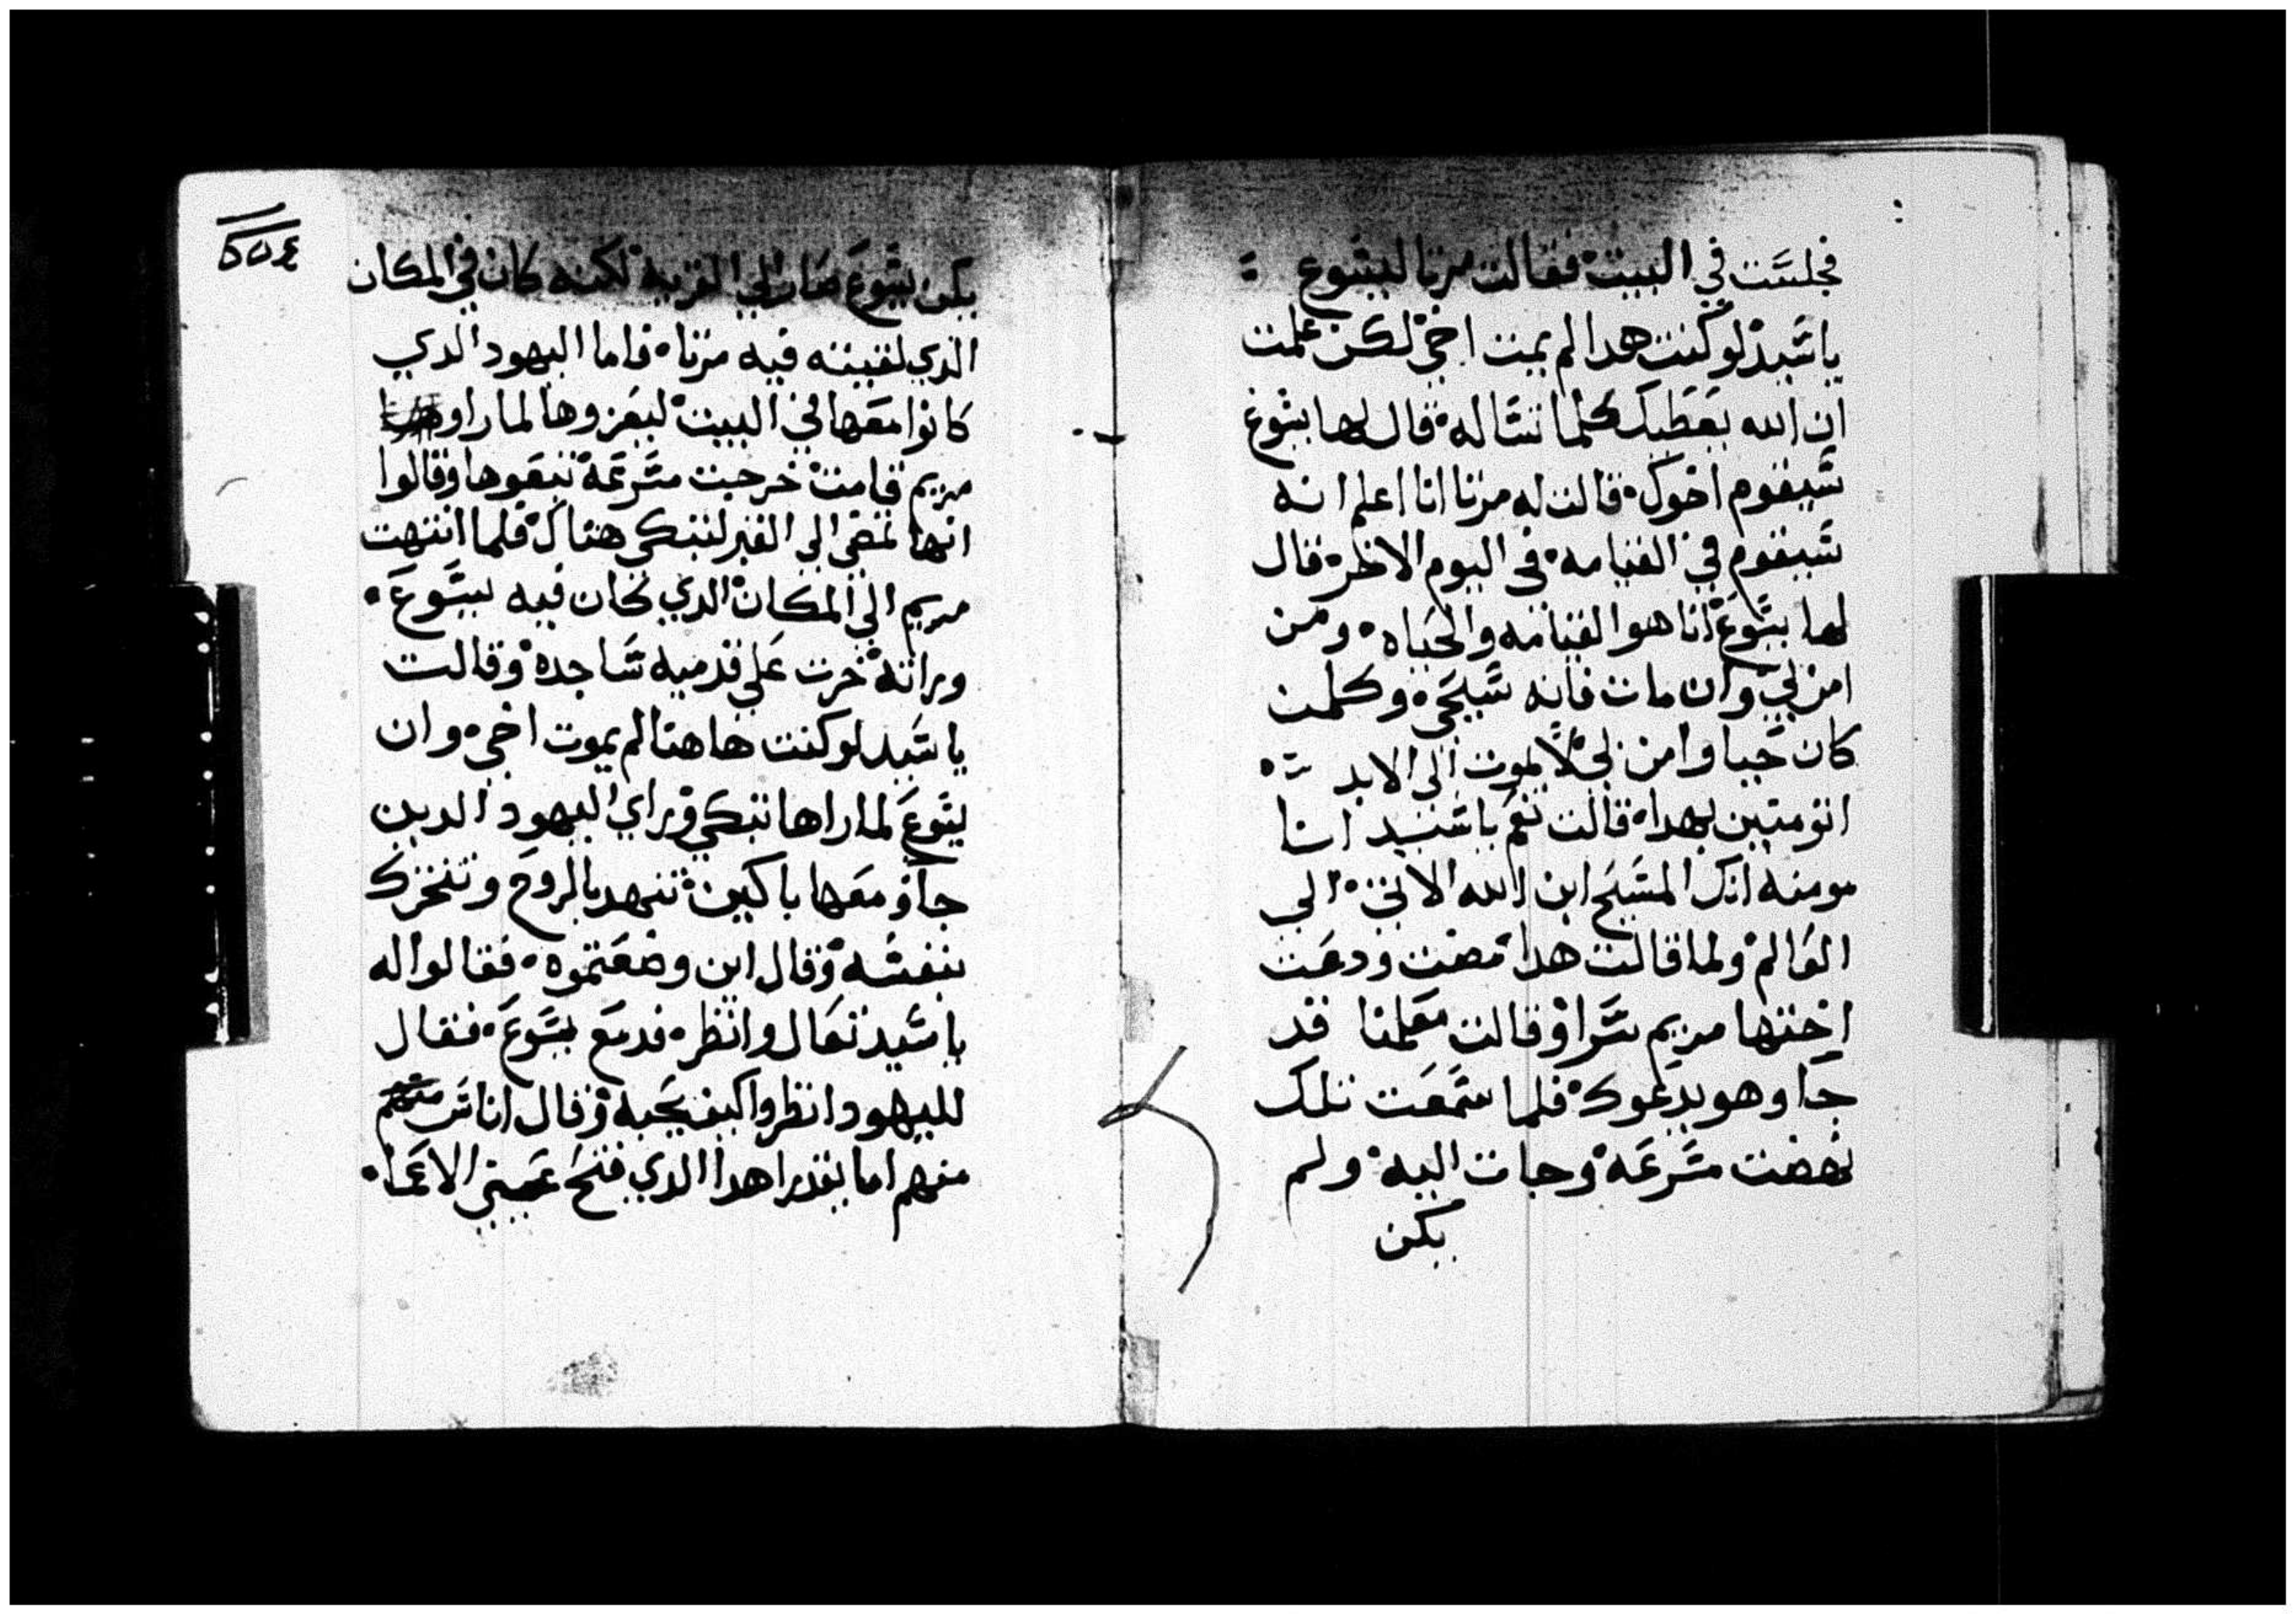 فجلست في البيت فقالت مرتا ليسوع
يا سيد لو كنت هدا لم يمت اخي لكن علمت
ان الله يعطيك كلما تساله قال لها يسوع
سيقوم اخوك قالت له مرتا انا اعلم انه
سيقوم في القيامه في اليوم الاخر قال
لها يسوع انا هوا القيامه والحياه ومن
امن بي وان مات فانه سيحي وكلمن
كان حيا وامن بي لا يموت الى الابد
اتومنين بهدا قالت نعم يا سيد انا
مومنه انك المسيح ابن الله الاتي الي
العالم ولما قالت هدا مضت ودعت
اختها مريم سرا وقالت معلمنا قد
جا وهو يدعوك فلما سمعت تلك
نهضت مسرعه وجات اليه ولم
يكن
٥٥٤
يكن يسوع صار الي القريه لكنه كان في المكان
الذي لقيته فيه مرتا فاما اليهود الدي
كانوا معها في البيت ليعزوها لما راوا
مريم قامت خرجت مسرعة تبعوها وقالوا
انها تمضي الي القبر لتبكي هناك فلما انتهت
مريم الي المكان الدي كان فيه يسوع
وراته خرت علي قدميه ساجده وقالت
يا سيد لو كنت هاهنا لم يموت اخي وان
يسوع لما راها تبكي وراي اليهود الدين
جاو معها باكين تنهد بالروح وتحرك
بنفسه وقال اين وضعتموه فقالوا له
يا سيد تعال وانظر فدمع يسوع فقال
لليهود انظروا كيف يحبه وقال اناس
منهم اما يقدر هدا الدي فتح عيني الاعما